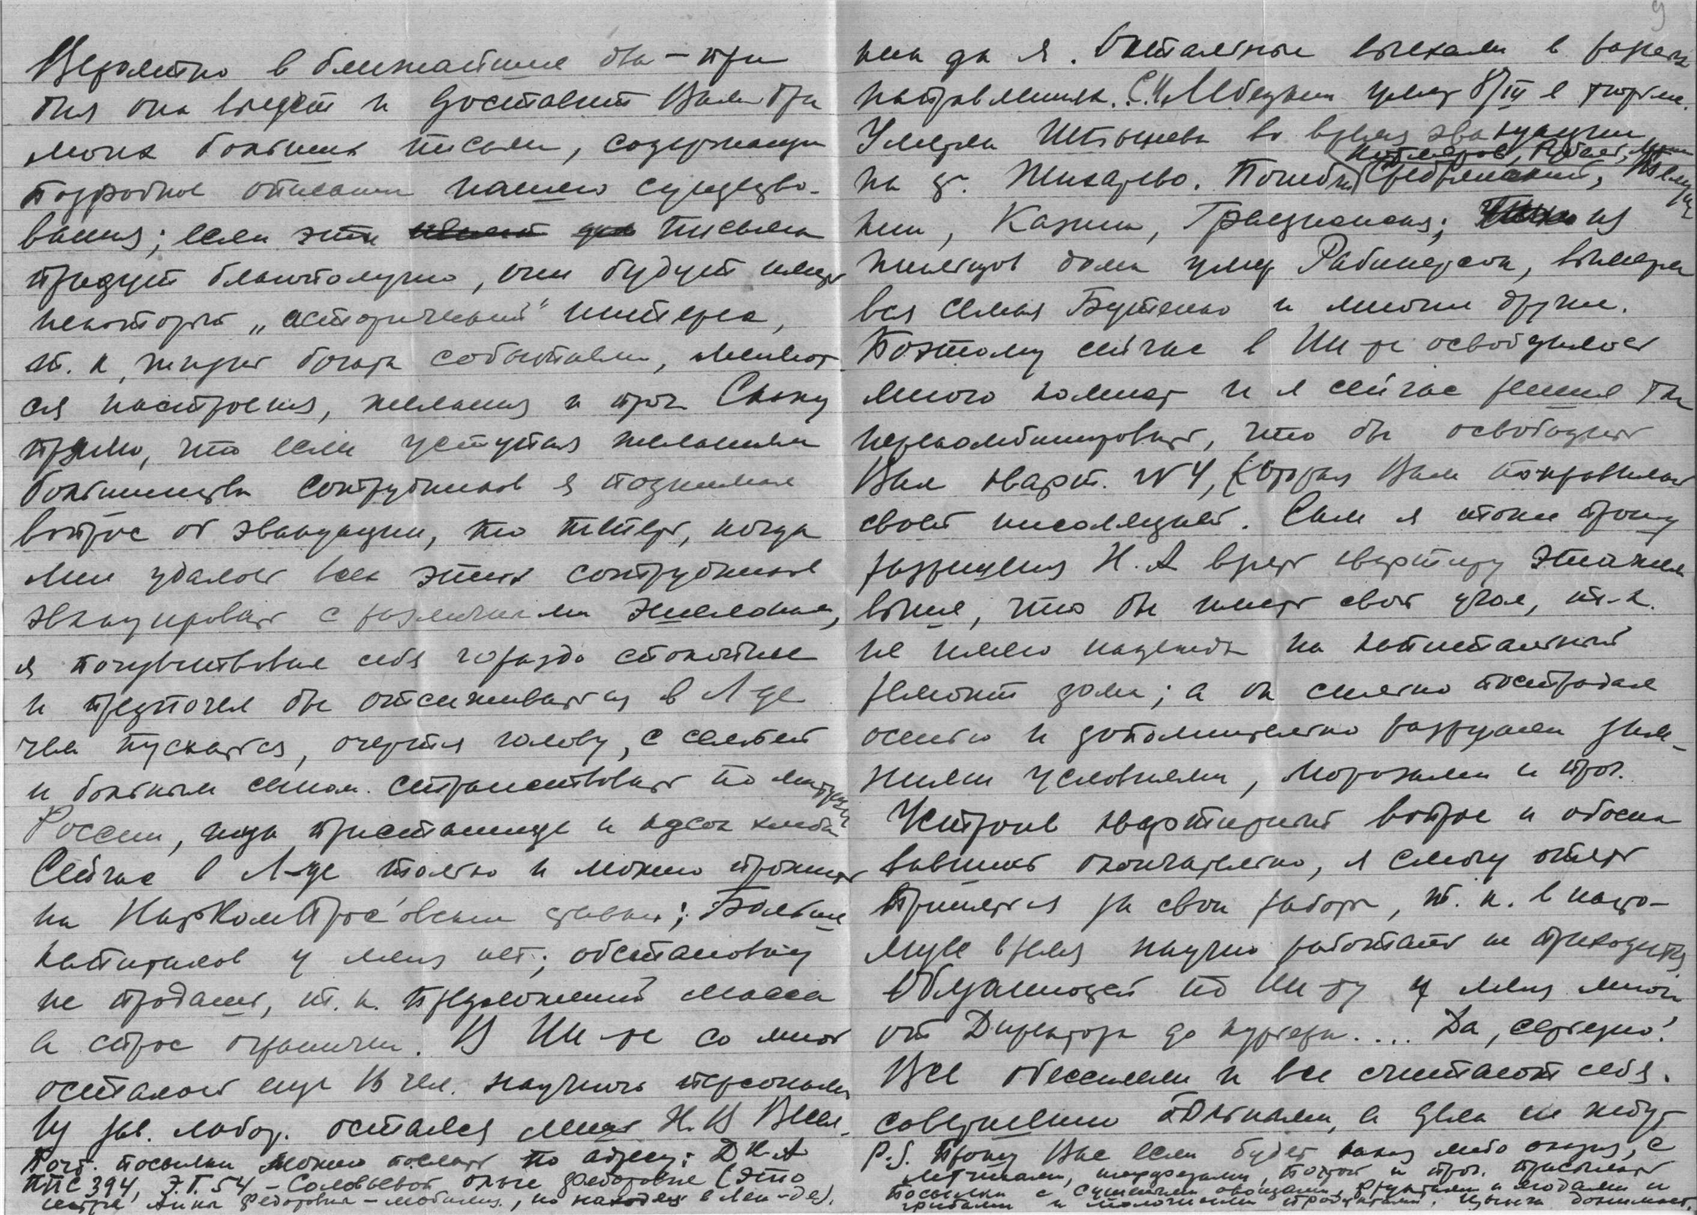 Вероятно в ближайшие два – три
дня она выедет и доставит Вам три
моих больших письма, содержащих
подробное описание нашего существо-
вания; если эти письма
придут благополучно, они будут иметь
некоторый „исторический" интерес,
т. к. жизнь богата событиями, меняют
ся настроения, желания и проч. Скажу
прямо, что если уступая желаниям
большинства сотрудников я поднимал
вопрос об эвакуации, то теперь, когда
мне удалось всех этих сотрудников
эвакуировать с различными эшелонами,
я почувствовал себя гораздо спокойнее
и предпочел бы отсиживаться в Л-де
чем пускаться, очертя голову, с семьей
и больным сыном странствовать по матушке
России, ища пристанище и кусок хлеба
Сейчас в Л-де только и можно прожить
на НарКомПрос'овские ; Больше
капиталов у меня нет; обстановку
не продашь, т. к. предложений масса
а спрос ограничен. В Ин-те со мной
осталось еще 16 чел. научного персонала
Из зав. лабор. остался лишь Н. В
Почт. посылки можно послать по адресу: Д К. А
ППС 394, Э.Г. 54 – Соловьевой Ольге Федоровне (это
сестра Анна Федоровна – , но находится в Лен-де).
да я. Остальные выехали в разных
направлениях. умер 8/IV в
Умерла во время эвакуации
на ст. Жихарево. Погибли
, Казин, ; из
жильцов дома умер Рабинерсон, вымерла
вся семья Бутенко и многие другие.
Поэтому сейчас в Ин-те освободилось
много комнат и я сейчас решил так
перекомбинировать, что бы освободить
Вам кварт. № 4, которая Вам понравилась
своей инсоляцией. Сам я хочу прошу
разрешения Н. А взять квартиру этажом
выше, что бы иметь свой угол, т. к.
не имею надежды на капитальный
ремонт дома; а он сильно пострадал
осенью и дополнительно разрушен зим-
ними условиями, морозами и проч.
Устроив квартирный вопрос и обосно
вавшись окончательно, я смогу опять
приняться за свои работы, т. к. в насто-
ящее время научно работать не приходится.
Обязанностей по Ин-ту у меня много
от Директора до курьера.... Да, серьезно!
Все обессилели и все считают себя
совершенно больными, а дела не ждут
P.S. Прошу Вас если будет какая либо оказия, с
летчиками, , почтой и проч. присылать
посылки с сушеными овощами, фруктами и ягодами и
грибами и молочными продуктами. Цынга донимает.